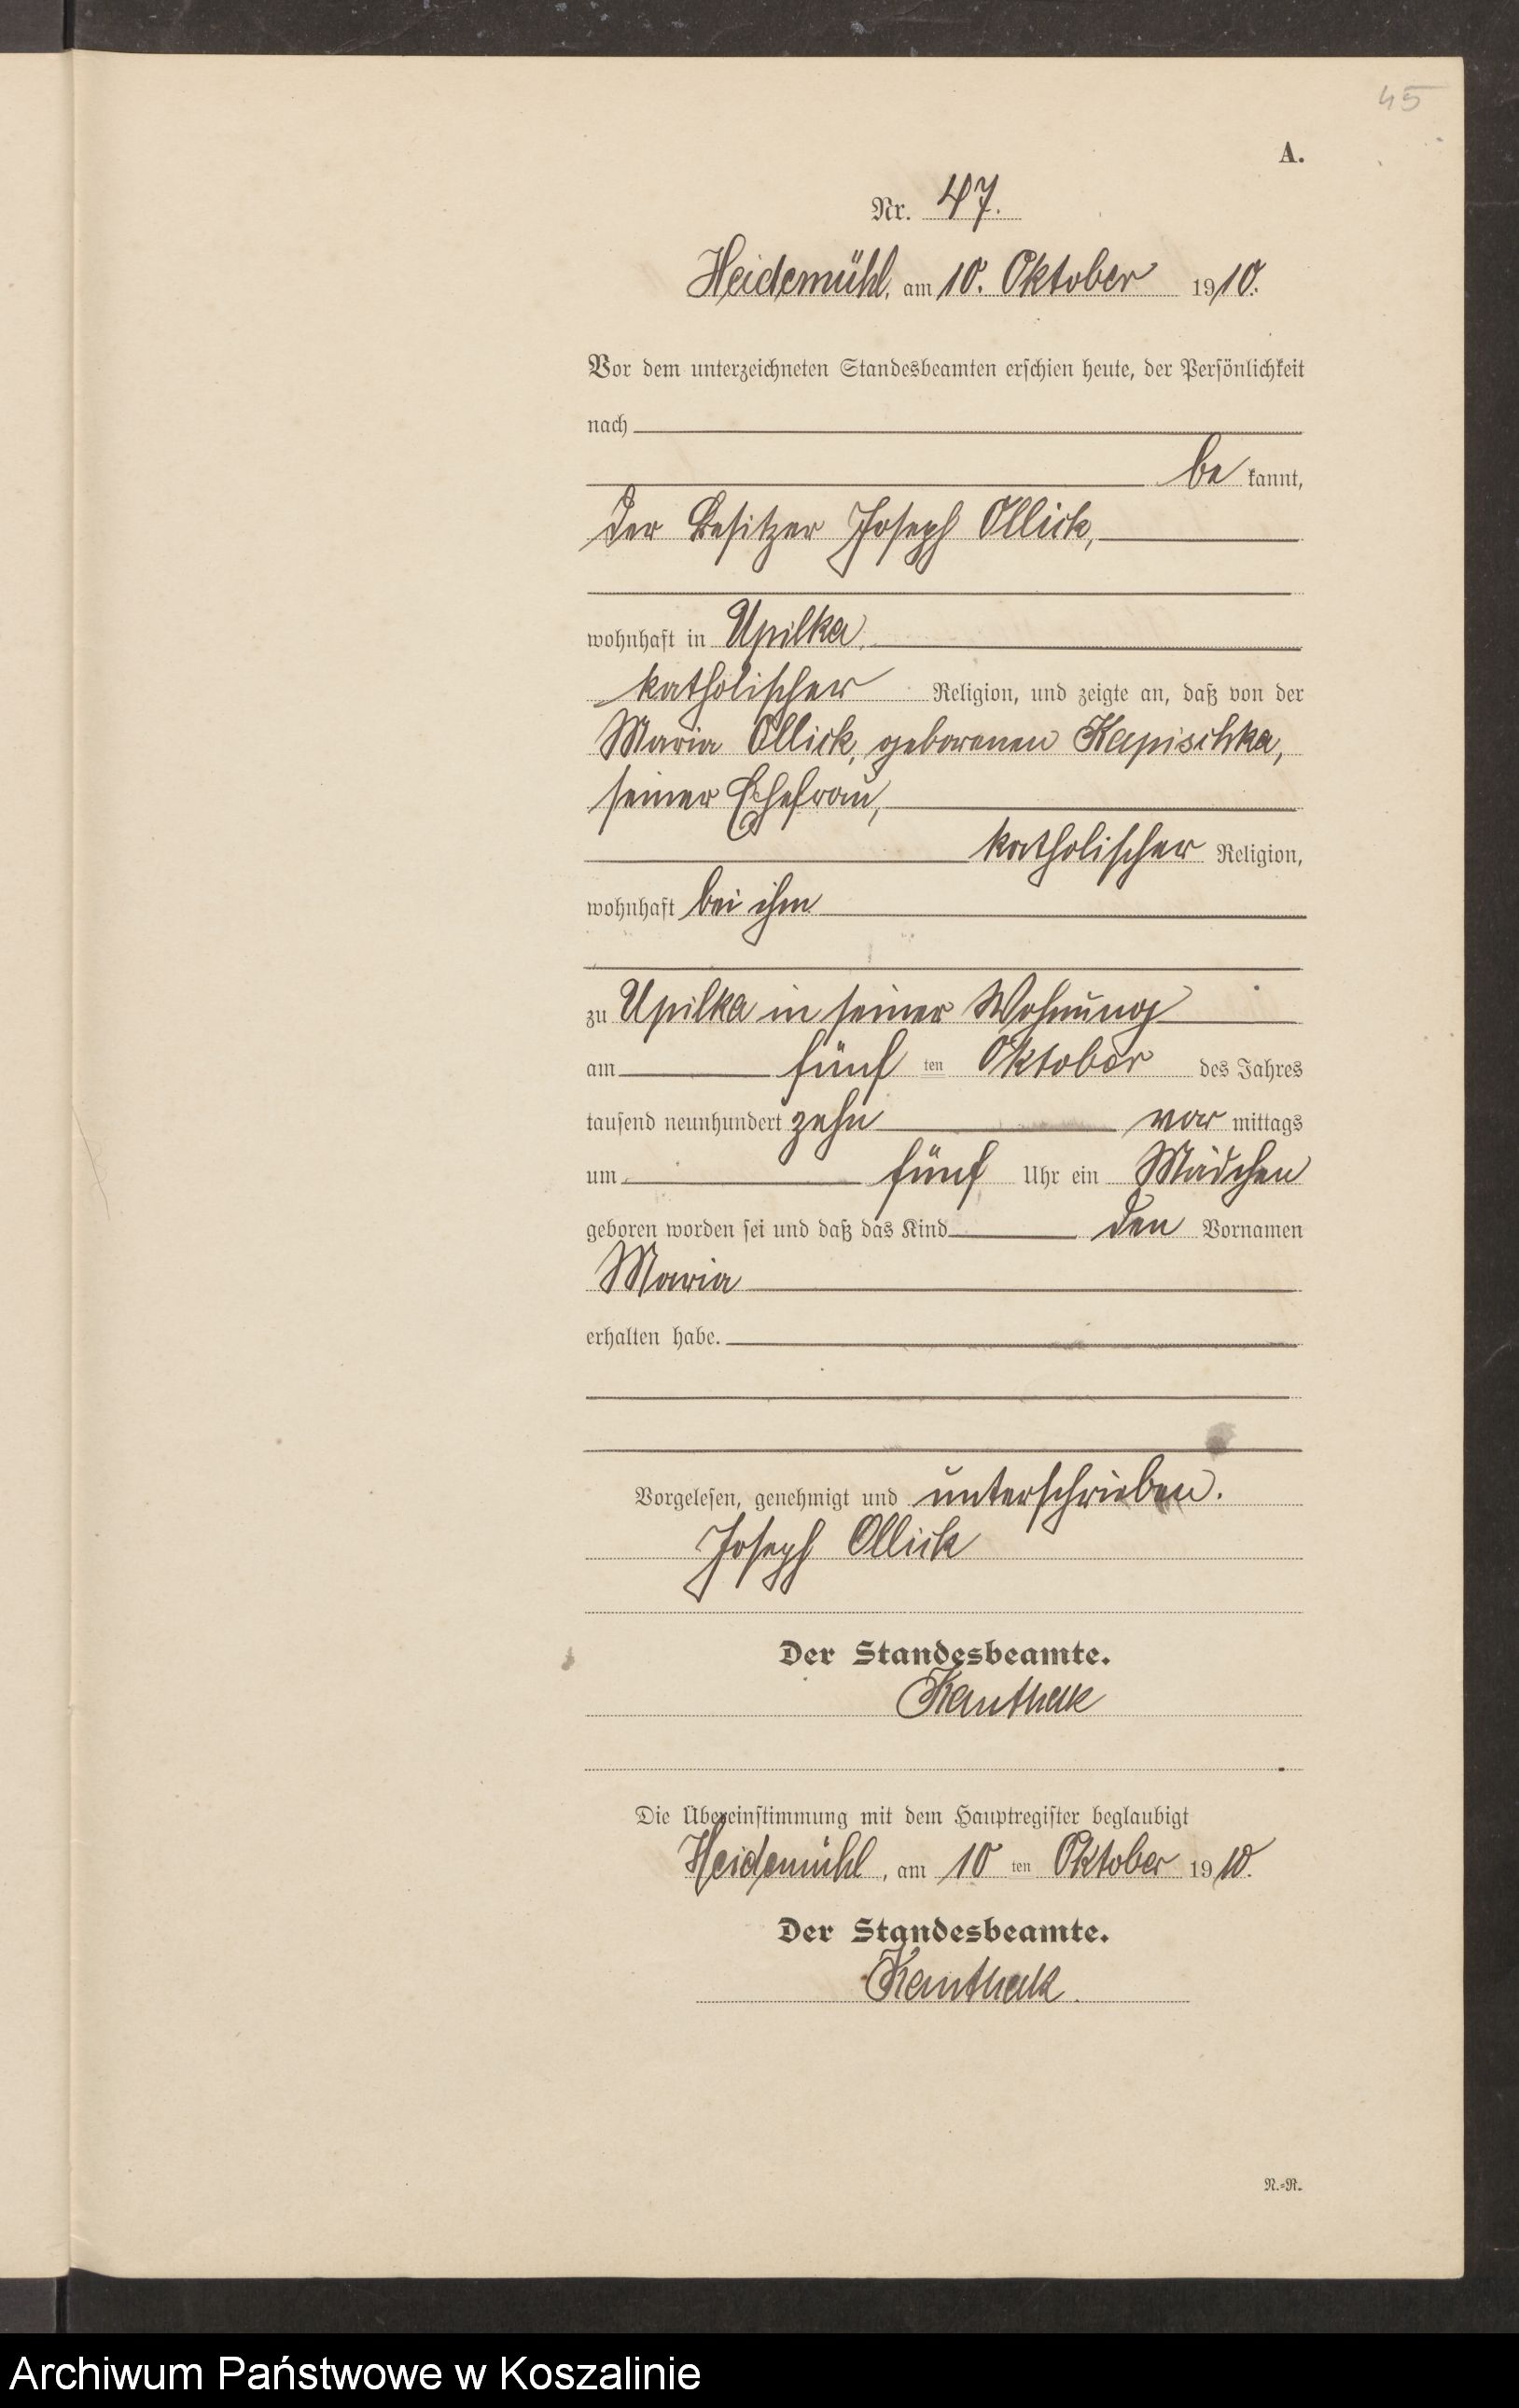 45
A.
Nr. 47.
Heidemühl, am 10. Oktober 1910.
Vor dem unterzeichneten Standesbeamten erschien heute, der Persönlichkeit
nach
be kannt,
der Besitzer Joseph Ollick,
wohnhaft in Upilka,
katholischer Religion, und zeigte an, daß von der
Maria Ollick, geborenen Kapischka,
seiner Ehefrau,
katholischer Religion,
wohnhaft bei ihm
zu Upilka in seiner Wohnung
am fünf ten Oktober des Jahres
tausend neunhundert zehn vor mittags
um fünf Uhr ein Mädchen
geboren worden sei und daß das Kind den Vornamen
Maria
erhalten habe.
Vorgelesen, genehmigt und unterschrieben.
Joseph Ollick
Der Standesbeamte.
Die Übereinstimmung mit dem Hauptregister beglaubigt
Heidemühl, am 10 ten Oktober 1910.
Der Standesbeamte.
N.=R.
Archiwum Państwowe w Koszalinie